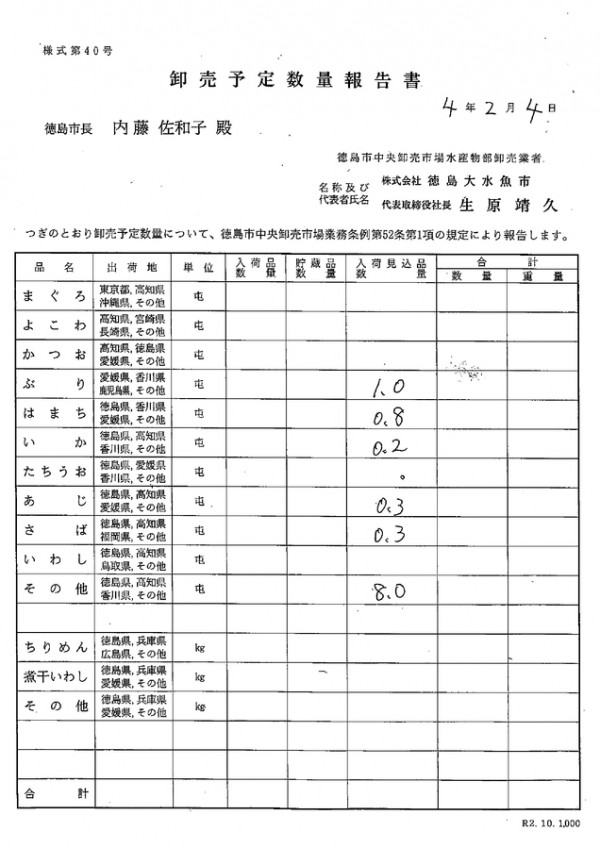 様式第40号
卸売予定数量報告書
4年2月4日
徳島市長 内藤 佐和子 殿
徳島市中央卸売市場水産物部卸売業者
名称及び 株式会社 徳島大水魚市
代表者氏名 代表取締役社長 生原靖久
つぎのとおり卸売予定数量について、徳島市中央卸売市場業務条例第52条第1項の規定により報告します。
品名 出荷地 単位 入荷品数量 貯蔵品数量 入荷見込品数量 合計
数量 重量
まぐろ 東京都, 高知県 屯
沖縄県, その他
よこわ 高知県, 宮崎県 屯
長崎県, その他
かつお 高知県, 徳島県 屯
愛媛県, その他
ぶり 愛媛県, 香川県 屯 1.0
鹿児島県, その他
はまち 徳島県, 香川県 屯 0.8
愛媛県, その他
いか 徳島県, 高知県 屯 0.2
香川県, その他
たちうお 徳島県, 愛媛県 屯
香川県, その他
あじ 徳島県, 高知県 屯 0.3
愛媛県, その他
さば 徳島県, 高知県 屯 0.3
福岡県, その他
いわし 徳島県, 高知県 屯
鳥取県, その他
その他 徳島県, 高知県 屯 8.0
香川県, その他
ちりめん 徳島県, 兵庫県 kg
広島県, その他
煮干いわし 徳島県, 兵庫県 kg
愛媛県, その他
その他 徳島県, 兵庫県 kg
愛媛県, その他
合計
R2. 10. 1,000